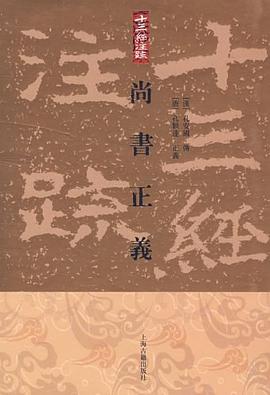 十三經注疏
十三經注疏
尚書正義
[漢]孔安國 傳
[唐]孔穎達 正義
上海古籍出版社